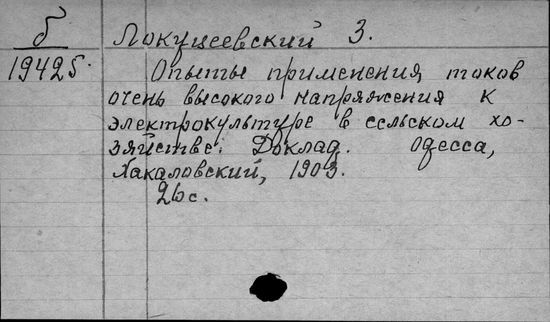 б
19425.
Локуцеевский З.
Опыты применения токов
очень высокого напряжения к
электрокультуре в сельском хо-
зяйстве. Доклад. Одесса,
Хакаловский, 1903.
26с.